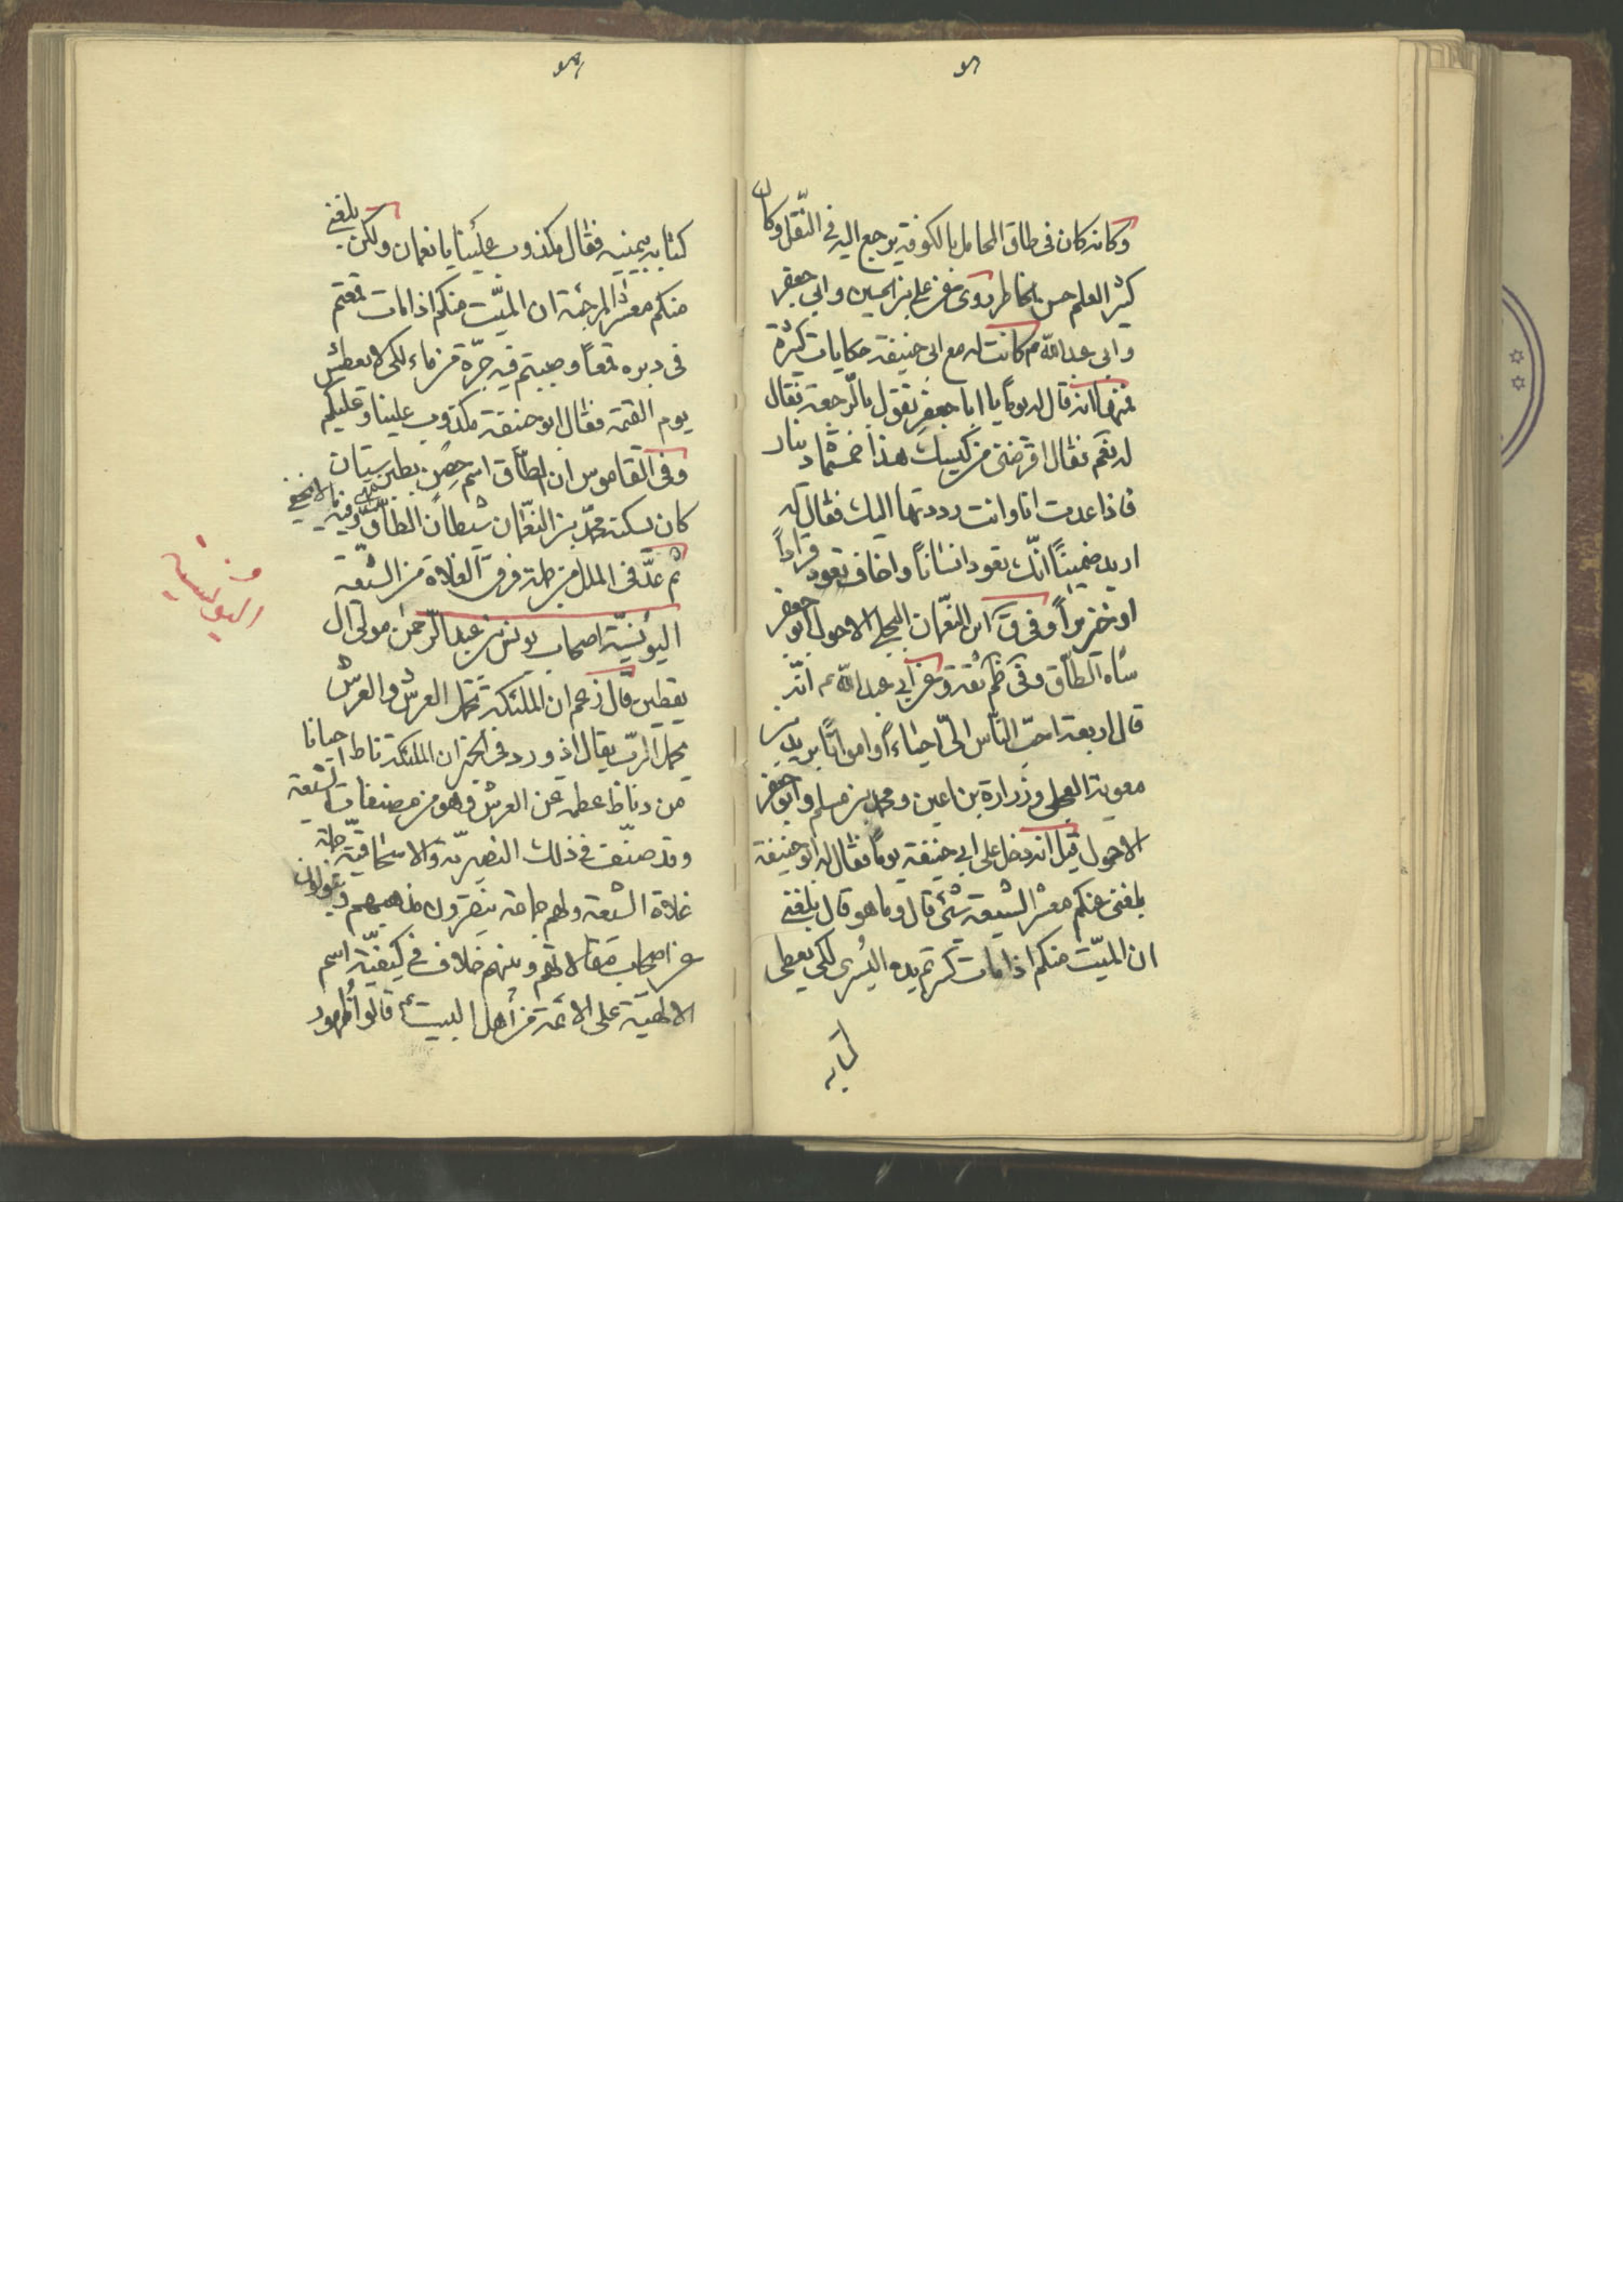 وكانه كان في طاق المحامل بالكوفة يرجع اليه في النّقل وكان
كثير العلم حسن الخاطر روى عن علي بن الحسين وابي جعفر
وابي عبد الله م كانت له مع ابي حنيفة حكايات كثيرة
فمنها انه قال له يوماً يا ابا جعفر تقول بالرّجعة فقال
له نعم فقال اقرضني من كيسك هذا خمسمائة دينار
فاذا عدت انا وانت رددتها اليك فقال له
اريد ضميناً انّك تعود انساناً واخاف تعود قراداً
او خنزيراً وفي ق ابن النّعمان البجلي الاحول ابو جعفر
شاه الطّاق وفي ظم ثقة وعن ابي عبد الله ع انّه
قال اربعة احبّ النّاس اليّ احياءاً وامواتاً بريد بن
معوية العجلي وزرارة بن اعين ومحمد بن مسلم وابو جعفر
الاحول قيل انه دخل على ابي حنيفة يوماً فقال له ابو حنيفة
بلغني عنكم معشر الشيعة شئ قال وما هو قال بلغني
ان الميّت منكم اذا مات كسرتم يده اليُسرى لكي يعطى
كتابه
كتابه بيمينه فقال مكذوب علينا يا نعمان ولكن بلغني
منكم معشر المرجئة ان الميّت منكم اذا مات قمعتم
في دبره قمعاً وصببتم فيه جرّة من ماء لكي لا يعطش
يوم القيمة فقال ابو حنيفة مكذوب علينا وعليكم
وفي القاموس ان الطّاق اسم حصن بطبرستان
كان يسكنه محمّد بن النّعمان شيطان الطّاق وفيه ما لا يخفى
ثم عدّ في الملل من جملة فرق الغلاة من الشّيعة
اليونسيّة اصحاب يونس بن عبد الرّحمن مولى آل
يقطين قال زعم ان الملئكة تحمل العرش والعرش
يحمل الرّب تعالى اذ ورد في الخبر ان الملئكة تاط احيانا
من وطأة عظمة على العرش وهو من مصنفات الشيعة
وقد صنّف في ذلك النصيريّة والاسحاقيّة جملة
غلاة الشيعة ولهم جماعة ينصرون مذاهبهم ويذبّون
عن اصحاب مقالاتهم وبينهم خلاف في كيفيّة اسم
الالهيّة على الائمة من أهل البيت ع قالوا ظهور
ومن
اليونسية